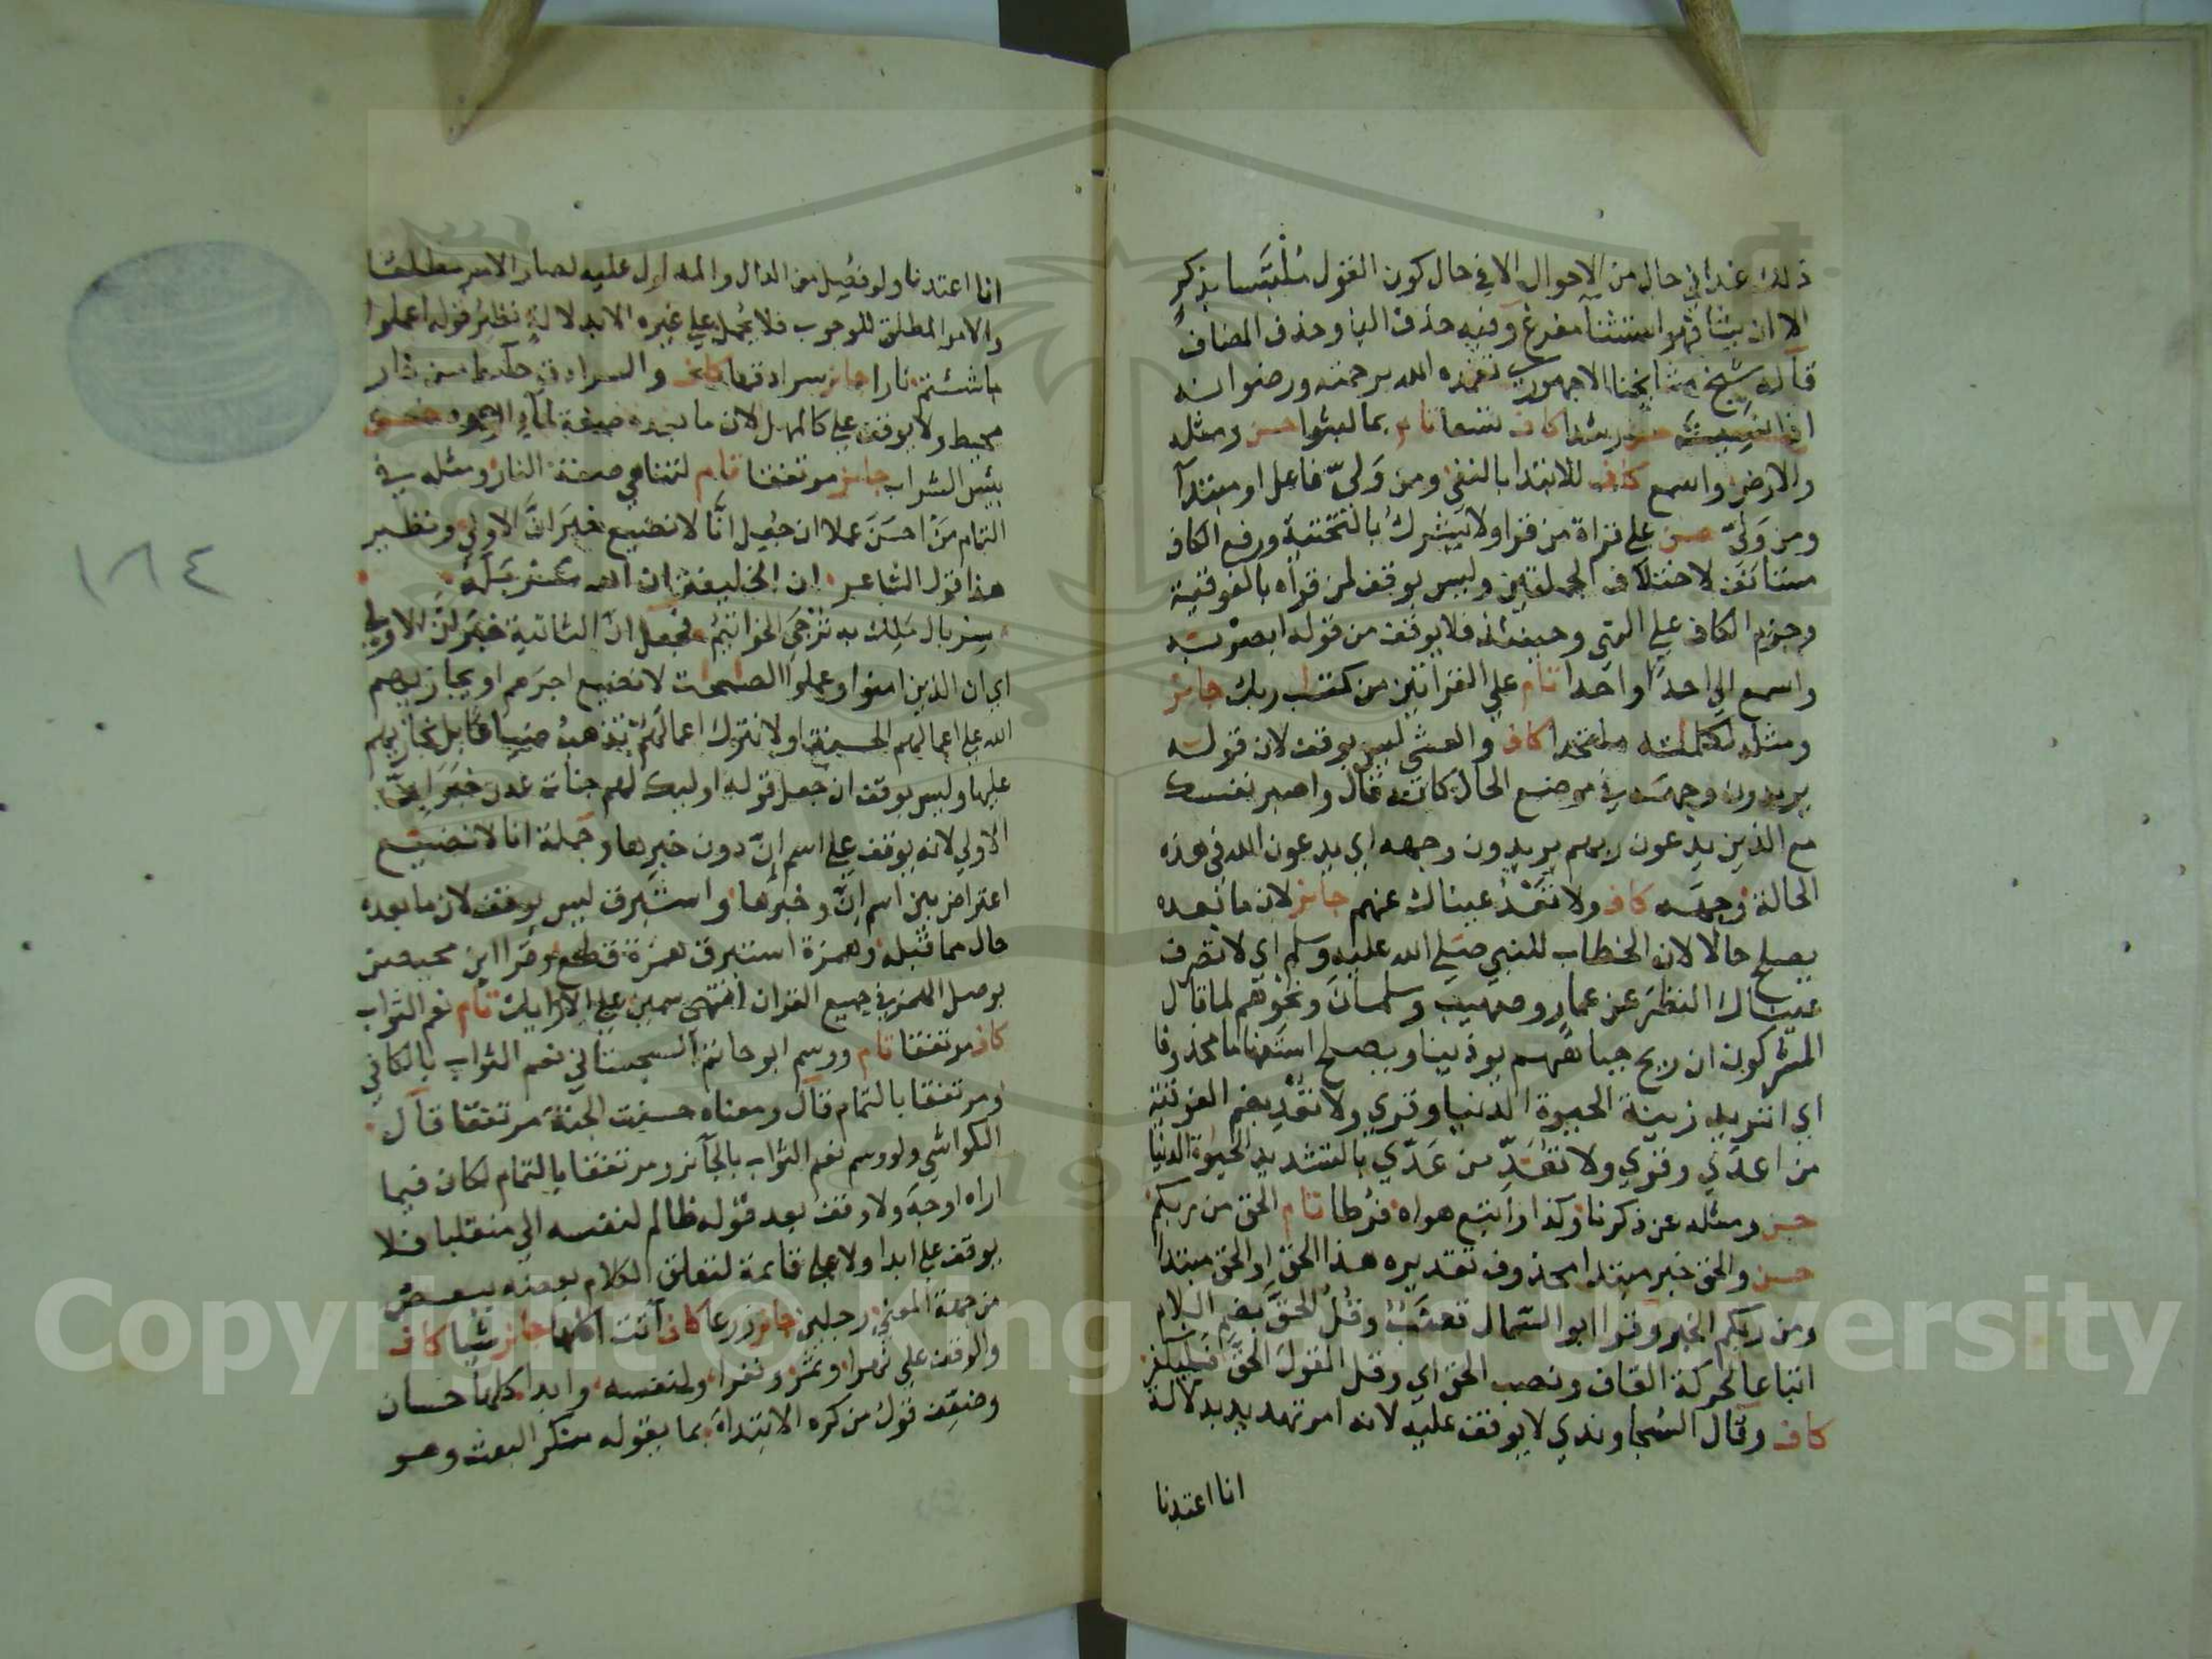 ذلك غدا في حال من الاحوال الا في حال كون القول ملتبسا بذكر
الا ان يشا فهو استثنآ مفرغ وفيه حذف البا وحذف المضاف
قاله شيخ مشايخنا الاجهوري تغمده الله برحمته ورضوانه
اذا نسيت حسن رشدا كاف تسعا تام بما لبثوا حسن ومثله
والارض واسمع كاف للابتدا بالنفي ومن ولي فاعل او مبتدآ
ومن ولي حسن علي قراة من قرا ولا يشرك بالتحتية ورفع الكاف
مستانفا لاختلاف الجملتين وليس بوقف لمن قراه بالفوقية
وجزم الكاف علي النهي وحينئذ فلا يوقف من قوله ابصر به
واسمع الي احدا واحدا تام علي القراتين من كتاب ربك جائز
ومثله لكلماته ملتحدا كاف والعشي ليس بوقف لان قوله
يريدون وجهه في موضع الحال كانه قال واصبر نفسك
مع الذين يدعون ربهم يريدون وجهه اي يدعون الله في هذه
الحالة وجهه كاف ولا تعد عيناك عنهم جائز لان ما بعده
يصلح حالا لان الخطاب للنبي صلي الله عليه وسلم اي لا تصرف
عيناك النظر عن عمار وصهيب وسلمان ونحوهم لما قال
المشركون ان ريح جبابهم يوذينا ويصلح استفهاما محذوفا
اي اتريد زينة الحيوة الدنيا وقري ولا تعد بضم الفوقية
من اعدي وقري ولا تعد من عدي بالتشديد الحيوة الدنيا
حسن ومثله عن ذكرنا وكذا واتبع هواه فرطا تام الحق من ربكم
حسن والحق خبر مبتدا محذوف تقديره هذا الحق او الحق مبتدا
ومن ربكم الخبر وقرا ابو السمال قعنب وقل الحق بضم اللام
اتباعا لحركة القاف ونصب الحق اي وقل القول الحق فليكفر
كاف وقال السجاوندي لا يوقف عليه لانه امر تهديد بدلالة
انا اعتدنا
انا اعتدنا ولو فصل بين الدال والمدلول عليه لصار الامر مطلقا
والامر المطلق للوجوب فلا يحمل علي غيره الا بدلالة نظير قوله اعملوا
ما شئتم نارا جائز سرادقها كاف والسرادق حآئط من نار
محيط ولا يوقف علي كالمهل لان ما بعده صفة لمآء الوجوه حسن
بئس الشراب جائز مرتفقا تام لتناهي صفة النار ومثله في
التمام من احسن عملا ان جعل انا لا نضيع خبر ان الاولي ونظير
هذا قول الشاعر ان الخليفة ان الله سربله
سربال ملك به ترجي الخواتيم فجعل ان الثانية خبر لان الاولي
اي ان الذين امنوا وعملوا الصلحت لا نضيع اجرهم او يجازيهم
الله علي اعمالهم الحسنة او لا نترك اعمالهم تذهب ضياعا بل نجازيهم
عليها وليس بوقف ان جعل قوله اوليك لهم جنات عدن خبر ان
الاولي لانه يوقف علي اسم ان دون خبرها وجملة انا لا نضيع
اعتراض بين اسم ان وخبرها واستبرق ليس بوقف لان ما بعده
حال مما قبله وهمزة استبرق همزة قطع وقرا ابن محيصن
بوصل الهمز في جميع القران انتهي سمين علي الارايك تام نعم الثواب
كاف مرتفقا تام ورسم ابو حاتم السجستاني نعم الثواب بالكافي
ومرتفقا بالتمام قال ومعناه حسنت الجنة مرتفقا قال
الكواشي ولو وسم نعم الثواب بالجآئز ومرتفقا بالتمام لكان فيما
اراه اوجه ولا وقف بعد قوله ظالم لنفسه الي منقلبا فلا
يوقف علي ابدا ولا علي قايمة لتعلق الكلام بعضه ببعض
من جهة المعني رجلين جائز زرعا كاف آتت اكلها جائز شيا كاف
والوقف علي نهرا وثمر ونفرا ولنفسه وابدا كلها حسان
وضعف قول من كره الابتداء بما يقوله منكر البعث وهو
١٨٤
Copyright © King Saud University
1957